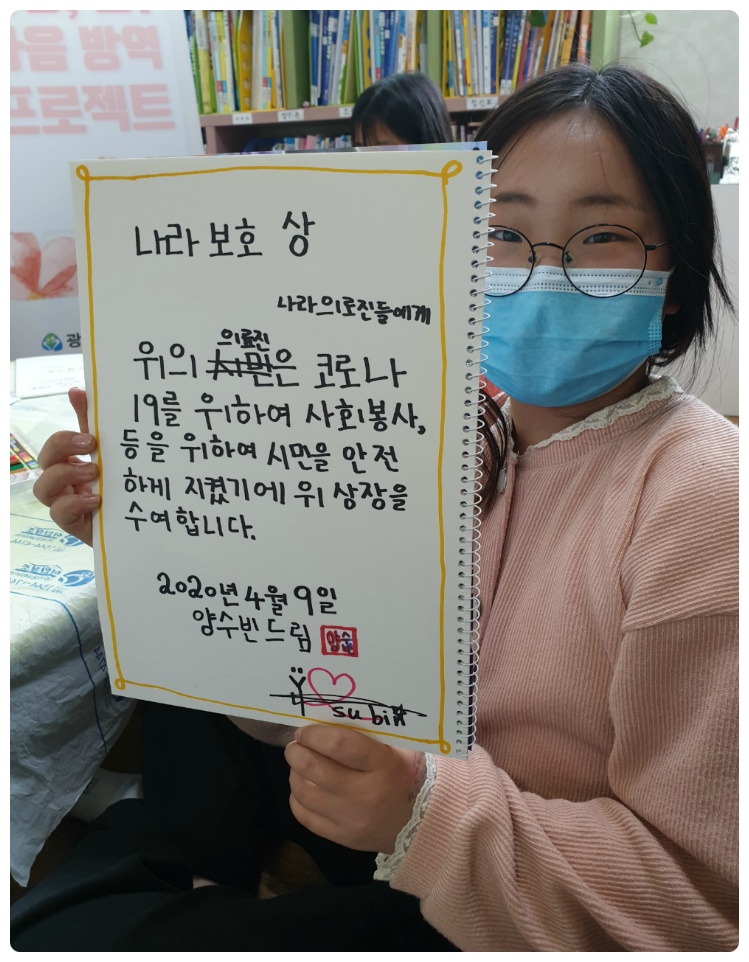 음 방역
프로젝트
광
나라 보호 상
나라의료진들에게
의료진
위의 시민은 코로나
19를 위하여 사회봉사,
등을 위하여 시민을 안전
하게 지켰기에 위 상장을
수여합니다.
2020년 4월 9일
양수빈드림
subin